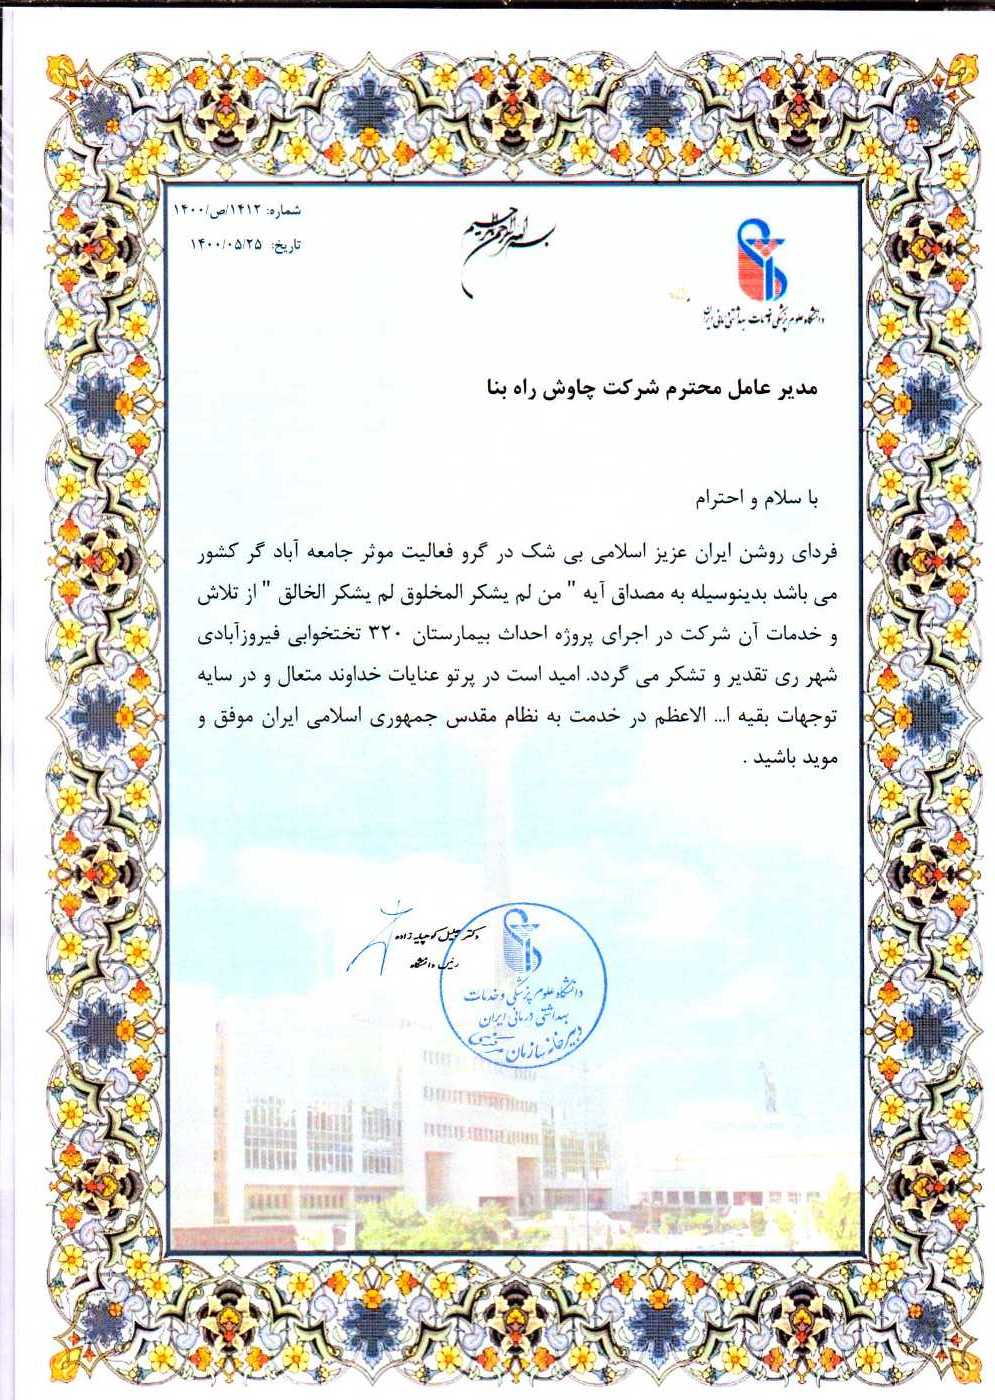 شماره: ۱۴۱۲/ص/۱۴۰۰
تاریخ: ۱۴۰۰/۰۵/۲۵
بسم الله الرحمن الرحیم
دانشگاه علوم پزشکی و خدمات بهداشتی درمانی ایران
مدیر عامل محترم شرکت چاوش راه بنا
با سلام و احترام
فردای روشن ایران عزیز اسلامی بی شک در گرو فعالیت موثر جامعه آباد گر کشور
می باشد بدینوسیله به مصداق آیه " من لم یشکر المخلوق لم یشکر الخالق " از تلاش
و خدمات آن شرکت در اجرای پروژه احداث بیمارستان ۳۲۰ تختخوابی فیروزآبادی
شهر ری تقدیر و تشکر می گردد. امید است در پرتو عنایات خداوند متعال و در سایه
توجهات بقیه ا... الاعظم در خدمت به نظام مقدس جمهوری اسلامی ایران موفق و
موید باشید .
دکتر جلیل کوهپایه زاده
رئیس دانشگاه
دانشگاه علوم پزشکی و خدمات
بهداشتی درمانی ایران
دبیرخانه سازمان مرکزی